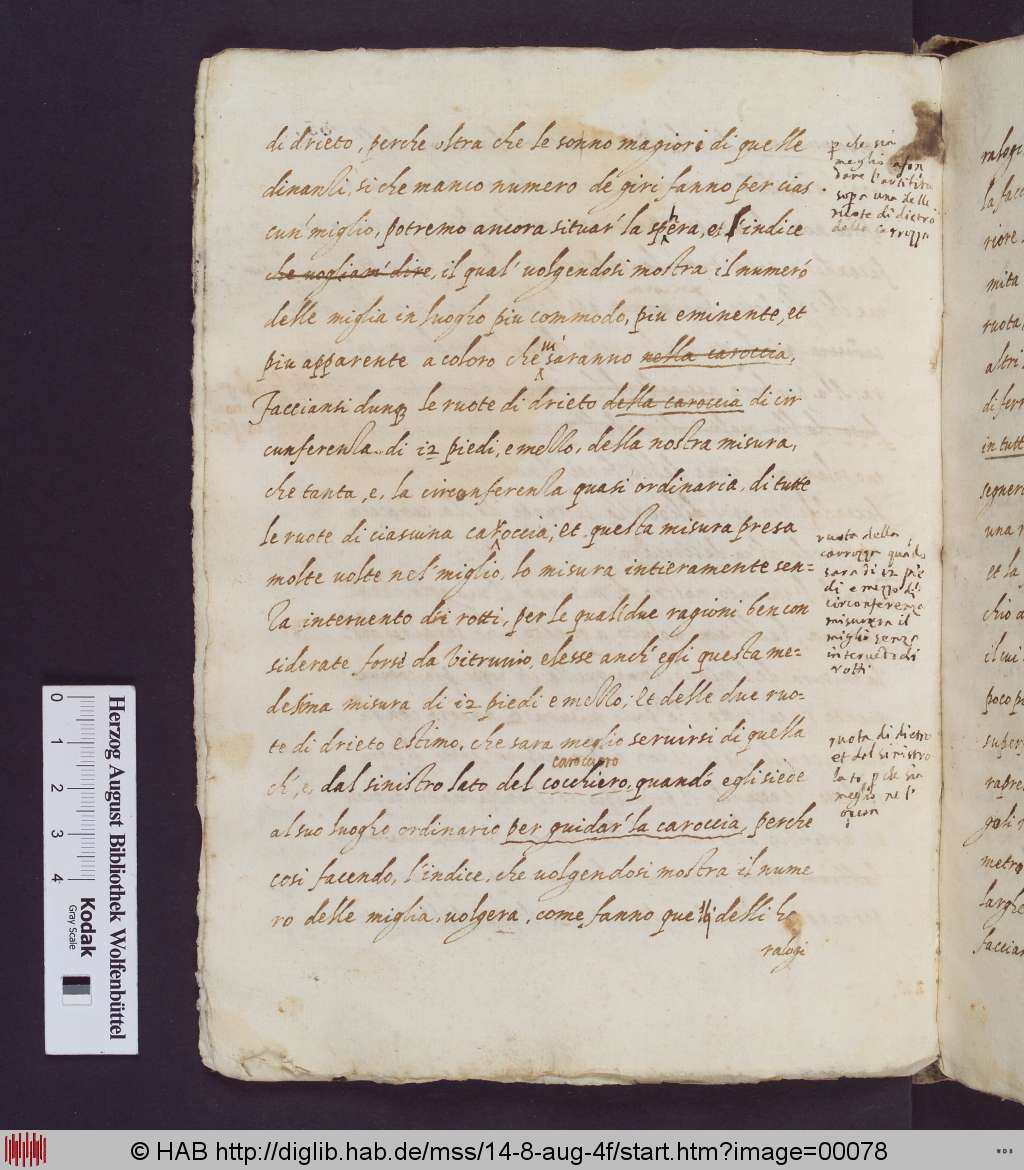 di drieto, perche oltra che le sonno magiori di quelle
dinanzi, si che manco numero de giri fanno per cias
cun' miglio, potremo ancora situar' la sphera, et l'indice
che uoglian' dire, il qual' uolgendosi mostra il numero
delle miglia in luogho piu commodo, piu eminente, et
piu apparente a coloro che saranno nella caroccia,
Faccianti dunq le ruote di drieto della caroccia di cir
cunferenza di 12 piedi, e mezzo, della nostra misura,
che tanta, e, la circonferenza quasi ordinaria, di tutte
le ruote di ciascuna carroccia; et questa misura presa
molte uolte nel' miglio, lo misura intieramente sen=
za interuento di rotti, per le quali due ragioni ben con
siderate forse da Vitruuio, elesse anch' egli questa me=
desima misura di 12 piedi e mezzo; Et delle due ruo=
te di drieto estimo, che sara meglio seruirsi di quella
caroccaro
ch', e, dal sinistro lato del cocchiero, quando egli siede
al suo luogho ordinario per guidar' la caroccia, perche
cosi facendo, l'indice, che uolgendosi mostra il nume
ro delle miglia, uolgera, come fanno quelli delli ho
ralogi
p che sia
meglio
dare l'artifitio
sopa una delle
ruote di dietro
della carrozza
ruota della
carrozza quãdo
sara di 12 pie
di e mezzo di
circonferenza
misurera il
miglio senza
interuẽto di
rotti
ruota di dietro
et dal sinistro
lato, p che sia
meglio
ralogi
la facc
riore
mita
ruota,
altri
di ferr
in tutt
segner
una r
et la
chio a
il ui
poco p
super
rapre
gali
metro
largh
faccian
0
1
2
3
4
Kodak
Gray Scale
Herzog August Bibliothek Wolfenbüttel
© HAB http://diglib.hab.de/mss/14-8-aug-4f/start.htm?image=00078
WDB